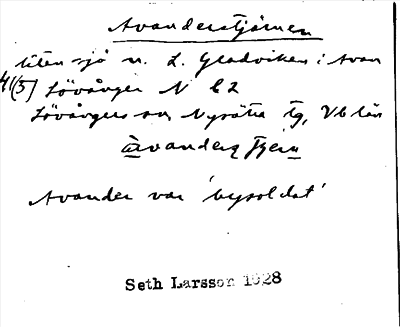 Avanderstjärnen
liten sjö n. L. Gladviken i Avan
41(5) Lövånger N b2
Lövångers sn Nysätra tg, Vb län
avanders tjern
Avander var 'bysoldat'
Seth Larsson 1928